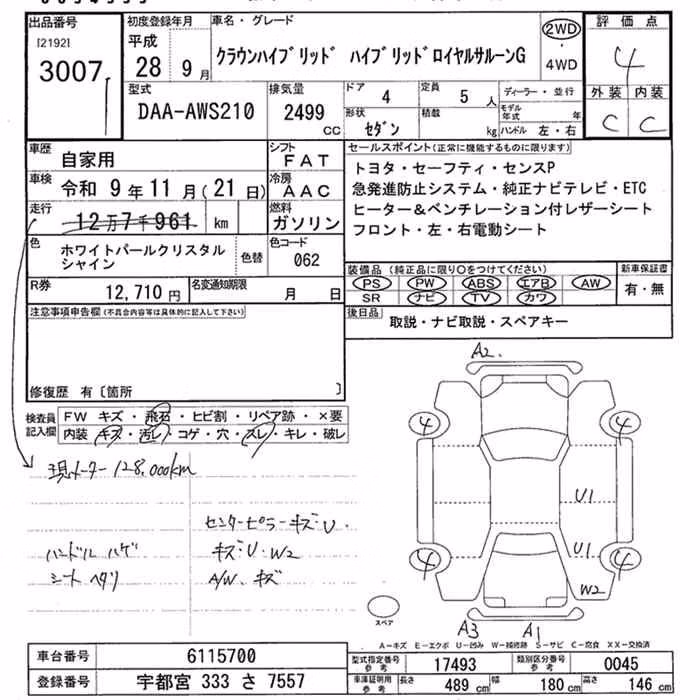 出品番号
[2192]
3007
初度登録年月
平成
28 9月
車名・グレード
クラウンハイブリッド ハイブリッドロイヤルサルーンG
2WD
・
4WD
評価点
4
外装 内装
C C
型式
DAA-AWS210
排気量
2499
CC
ドア 4
定員 5人
形状 セダン
積載 kg
ディーラー・並行
モデル年式 年
ハンドル 左・右
車歴 自家用
シフト FAT
車検 令和 9年11月(21日)
冷房 AAC
走行 12万7千961 km
燃料 ガソリン
色 ホワイトパールクリスタルシャイン
色替
色コード 062
R券 12,710円
名変通知期限 月 日
セールスポイント(正常に機能するものに限ります)
トヨタ・セーフティ・センスP
急発進防止システム・純正ナビテレビ・ETC
ヒーター&ベンチレーション付レザーシート
フロント・左・右電動シート
装備品(純正品に限り○をつけてください)
PS PW ABS エアB AW
SR ナビ TV カワ
新車保証書
有・無
後日品 取説・ナビ取説・スペアキー
注意事項申告欄(不具合内容等は具体的に記入して下さい)
修復歴 有〔箇所 〕
検査員記入欄
FW キズ・飛石・ヒビ割・リペア跡・×要
内装 キズ・汚レ・コゲ・穴・スレ・キレ・破レ
現メーター 128,000km
センターピラーキズ・U
ハンドル ハゲ
キズ・U・W2
シート ヘタリ
A/W、キズ
A2
4 4
U1
U1
4 4
W2
スペア
A3 A1
A-キズ E-エクボ U-凹み W-補修跡 S-サビ C-腐食 XX-交換済
車台番号 6115700
登録番号 宇都宮 333 さ 7557
型式指定番号参考 17493
類別区分番号参考 0045
車庫証明用参考 長さ 489cm 幅 180cm 高さ 146cm